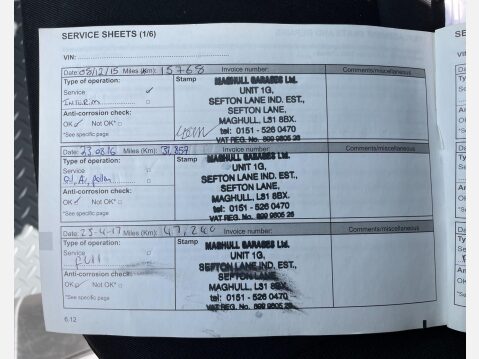 SERVICE SHEETS (1/6)
VIN:
Date: 08/12/15 Miles (Km): 15768 Invoice number: Comments/miscellaneous
Type of operation: Stamp
Service ✓
INTERIM
Anti-corrosion check:
OK ✓ Not OK*
*See specific page
MAGHULL GARAGES Ltd.
UNIT 1G,
SEFTON LANE IND. EST.,
SEFTON LANE,
MAGHULL, L31 8BX.
tel: 0151 - 526 0470
VAT REG. No. 899 9805 26
Date: 23.08.16 Miles (Km): 31,859 Invoice number: Comments/miscellaneous
Type of operation: Stamp
Service
Oil, Air, pollen
Anti-corrosion check:
OK ✓ Not OK*
*See specific page
MAGHULL GARAGES Ltd.
UNIT 1G,
SEFTON LANE IND. EST.,
SEFTON LANE,
MAGHULL, L31 8BX.
tel: 0151 - 526 0470
VAT REG. No. 899 9805 26
Date: 25-4-17 Miles (Km): 47,240 Invoice number: Comments/miscellaneous
Type of operation: Stamp
Service
FULL
Anti-corrosion check:
OK ✓ Not OK*
*See specific page
MAGHULL GARAGES Ltd.
UNIT 1G,
SEFTON LANE IND. EST.,
SEFTON LANE,
MAGHULL, L31 8BX.
tel: 0151 - 526 0470
VAT REG. No. 899 9805 26
6.12